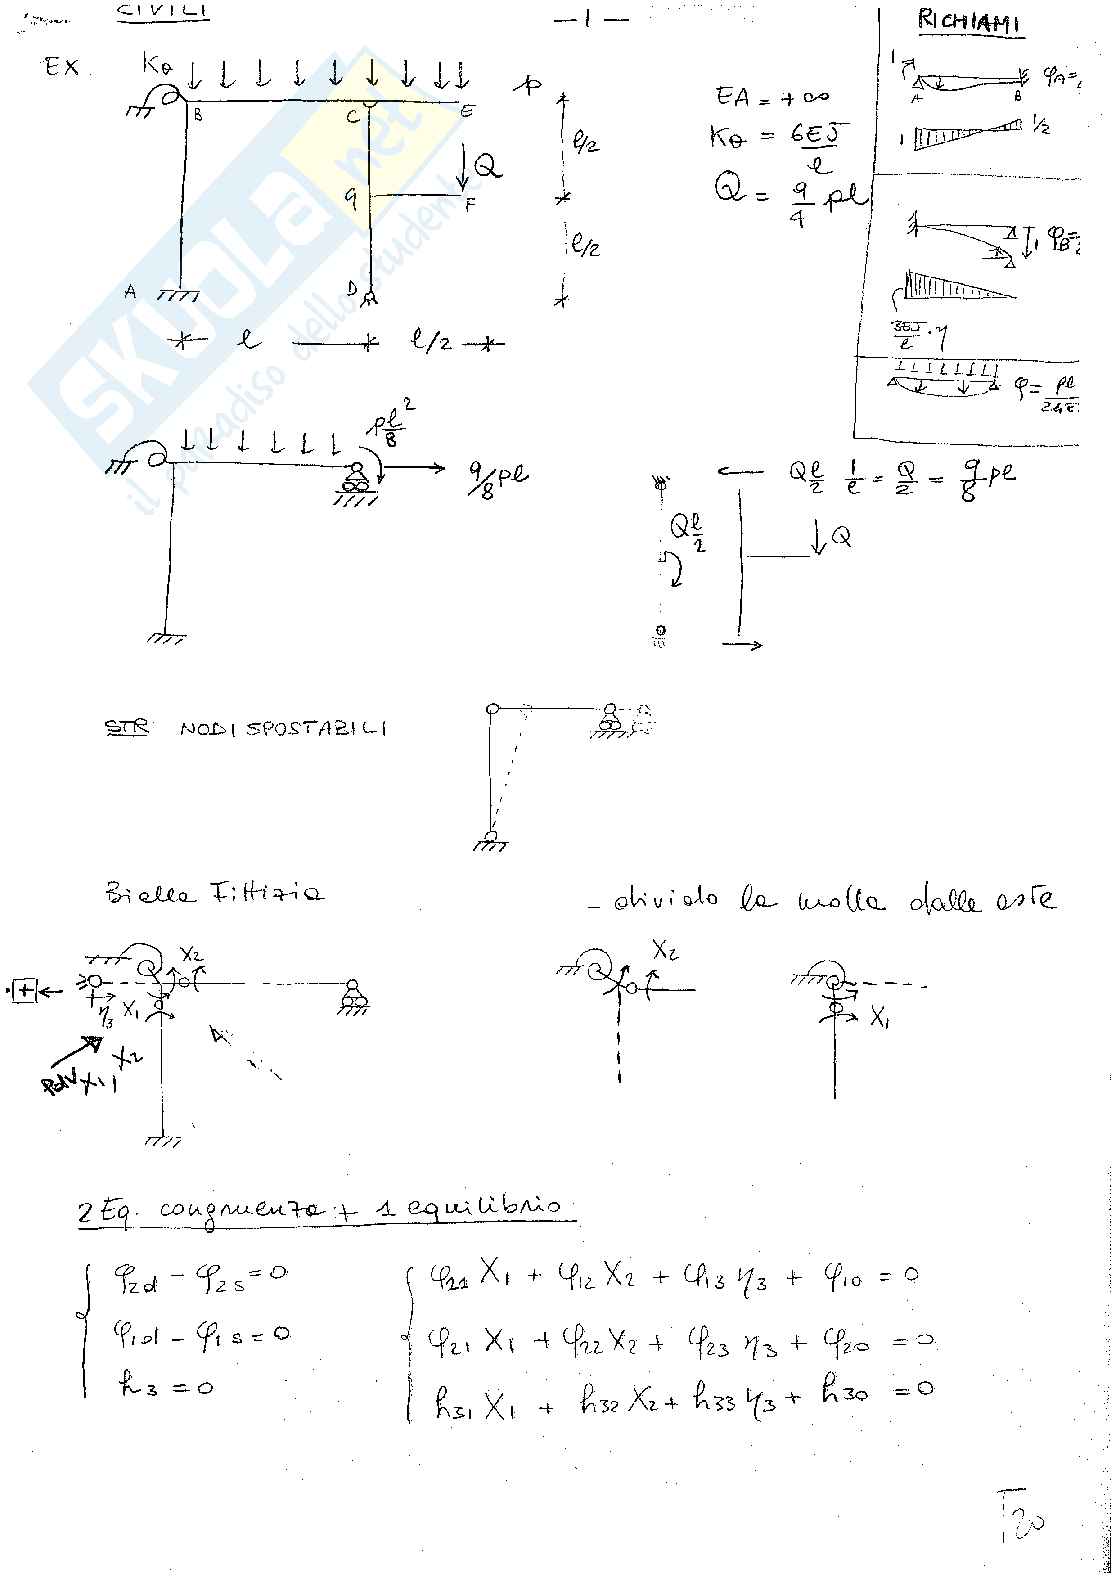 CIVILI
— 1 —
RICHIAMI
EX. Kθ
p
B C E
l/2
Q
q F
l/2
A D
l l/2
EA = +∞
Kθ = 6EJ/l
Q = 9/4 pl
1 A B φA=
1 1/2
1 φB=
3EJ/l · η
φ = pl
pl²/8
9/8 pl
Ql/2 1/l = Q/2 = 9/8 pl
Ql/2
Q
STR NODI SPOSTABILI
Biella Fittizia
- divido la molla dalle aste
+ X2
η3 X1
X2
X2
X1
2 Eq. congruenza + 1 equilibrio
φ2d - φ2s = 0
φ1d - φ1s = 0
h3 = 0
φ11 X1 + φ12 X2 + φ13 η3 + φ10 = 0
φ21 X1 + φ22 X2 + φ23 η3 + φ20 = 0
h31 X1 + h32 X2 + h33 η3 + h30 = 0
SKUOLA.net
il paradiso dello studente